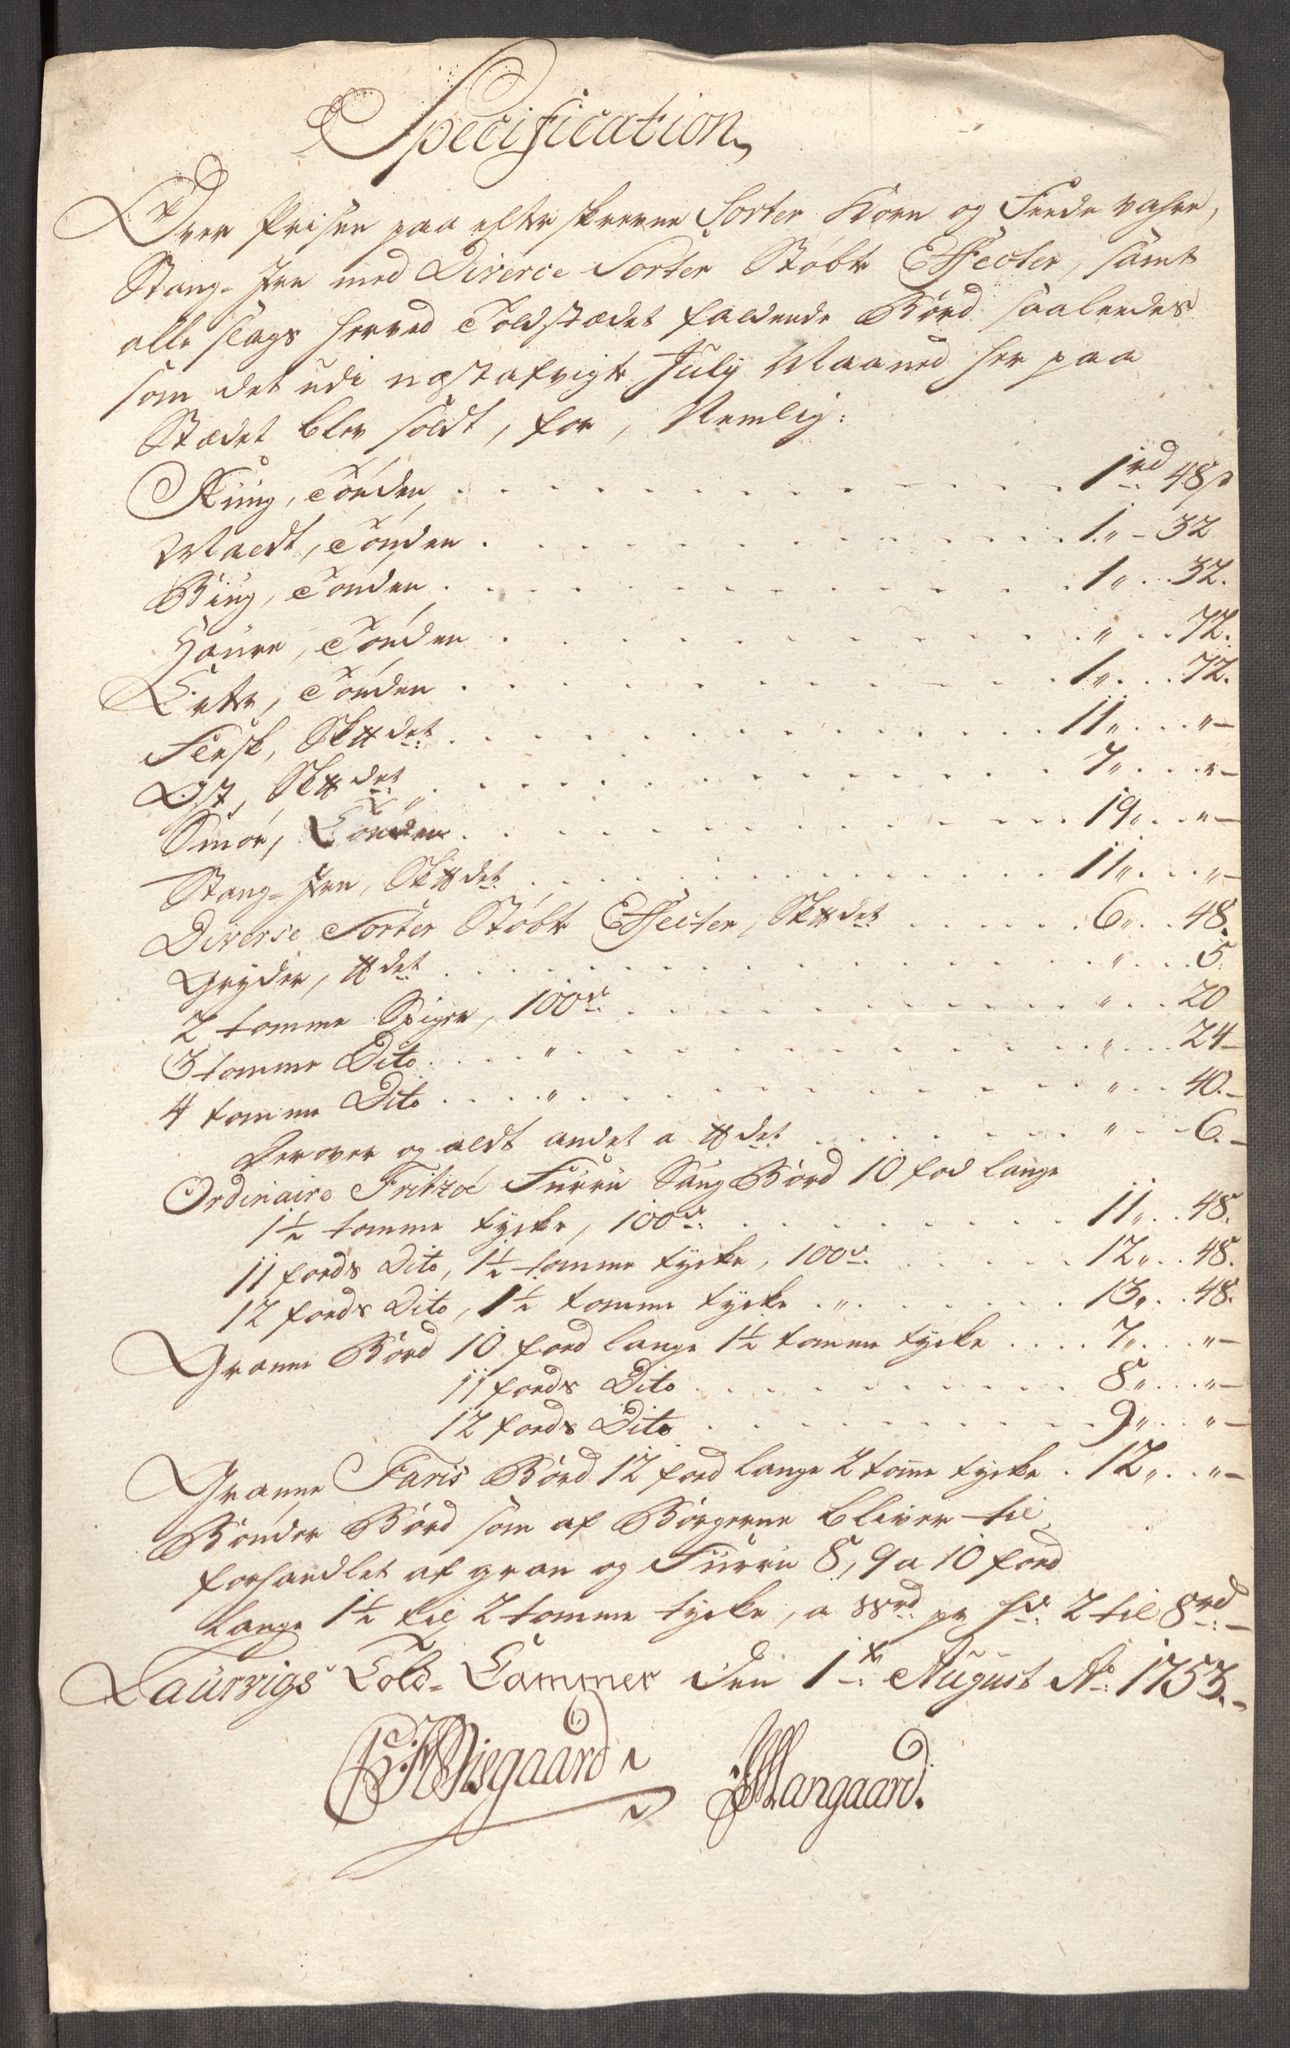 Specification
Over Prisen paa efterskrevne Sorter Korn og Feede vahre,
Stang-Jern med Diverce Sorter Støbte Effecter, samt
alle slags herved Toldstædet faldende Bord saaleedes
som det udi næstafvigte July Maaned her paa
Stædet blev soldt, for, Nemlig:
Rug, Tönden . . . 1 rd 48 s
Maldt, Tönden . . . 1 „ - 32
Biug, Tönden . . . 1 „ . . 32.
Haure, Tönden . . . „ . . 72.
Erter, Tönden . . . 1 „ . . 72.
Flesk, Sk℔det . . . 11 „ . . „ -
Ost, Sk℔det . . . 7 „ . . „ -
Smör, Tönden . . . 19 „ . . „ -
Stang-Jern, Sk℔det . . . 11 „ . . „ -
Diverse Sorter Støbte Effecter, Sk℔det . . . 6 „ . . 48.
Gryder, ℔det . . . „ . . 5.
2 tomme Spiger, 100de . . . „ . . 20
3 tomme Dito . . . „ . . . „ . . 24 -
4 tomme Dito . . . „ . . . „ . . 40. -
Derover og aldt andet a ℔det . . . „ . . 6. -
Ordinaire Fritzöe Fürru Saug Bord 10 fod lange
1½ tomme tycke, 100de . . . 11 „ . . 48.
11 fods Dito, 1½ tomme tycke, 100de . . . 12 „ . . 48.
12 fods Dito, 1½ tomme tycke . „ . . . 13 „ . . 48.
Granne Bord 10 fod lange 1½ tomme tycke . . . 7 „ . . „ -
11 fods Dito . . . 8 „ . . „ -
12 fods Dito . . . 9 „ . . „ -
Granne Faris Bord 12 fod lange 2 tome tycke . 12 „ . . „ -
Bönder Bord som af Borgerne bliver til
forhandlet af gran og Fürru 8, 9 a 10 fod
lange 1½ til 2 tomme tycke, a pr 2 til 8 rd -
Laurvigs Told-Cammer den 1te August Ao 1753.
Wisgaard
Mangaard.